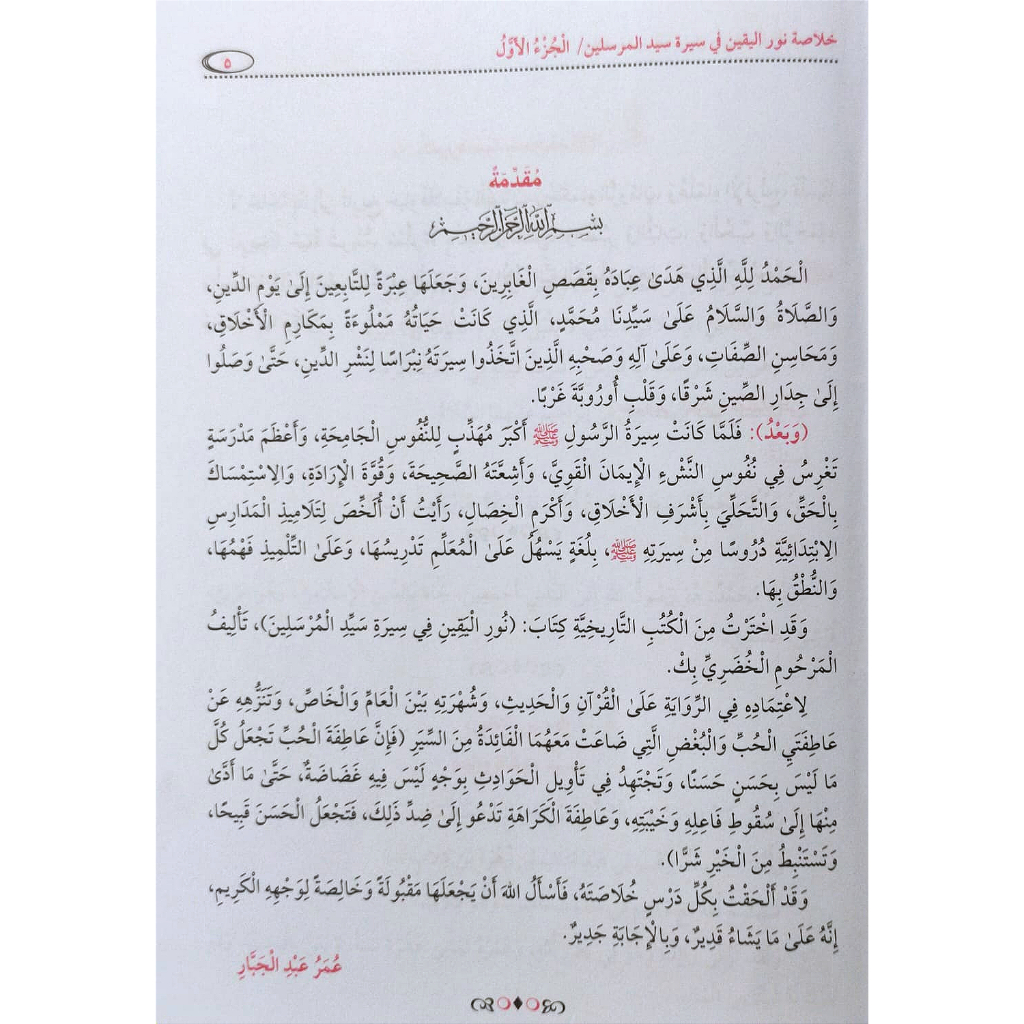 خلاصة نور اليقين في سيرة سيد المرسلين/ الْجُزْءُ الأَوَّلُ
٥
مُقَدِّمَةٌ
بِسْمِ اللَّهِ الرَّحْمَنِ الرَّحِيمِ
الْحَمْدُ لِلَّهِ الَّذِي هَدَىٰ عِبَادَهُ بِقَصَصِ الْغَابِرِينَ، وَجَعَلَهَا عِبْرَةً لِلتَّابِعِينَ إِلَىٰ يَوْمِ الدِّينِ،
وَالصَّلَاةُ وَالسَّلَامُ عَلَىٰ سَيِّدِنَا مُحَمَّدٍ، الَّذِي كَانَتْ حَيَاتُهُ مَمْلُوءَةً بِمَكَارِمِ الْأَخْلَاقِ،
وَمَحَاسِنِ الصِّفَاتِ، وَعَلَىٰ آلِهِ وَصَحْبِهِ الَّذِينَ اتَّخَذُوا سِيرَتَهُ نِبْرَاسًا لِنَشْرِ الدِّينِ، حَتَّىٰ وَصَلُوا
إِلَىٰ جِدَارِ الصِّينِ شَرْقًا، وَقَلْبِ أُورُوبَّةَ غَرْبًا.
(وَبَعْدُ): فَلَمَّا كَانَتْ سِيرَةُ الرَّسُولِ ﷺ أَكْبَرَ مُهَذِّبٍ لِلنُّفُوسِ الْجَامِحَةِ، وَأَعْظَمَ مَدْرَسَةٍ
تَغْرِسُ فِي نُفُوسِ النَّشْءِ الْإِيمَانَ الْقَوِيَّ، وَأَشِعَّتَهُ الصَّحِيحَةَ، وَقُوَّةَ الْإِرَادَةِ، وَالِاسْتِمْسَاكَ
بِالْحَقِّ، وَالتَّحَلِّيَ بِأَشْرَفِ الْأَخْلَاقِ، وَأَكْرَمِ الْخِصَالِ، رَأَيْتُ أَنْ أُلَخِّصَ لِتَلَامِيذِ الْمَدَارِسِ
الِابْتِدَائِيَّةِ دُرُوسًا مِنْ سِيرَتِهِ ﷺ، بِلُغَةٍ يَسْهُلُ عَلَىٰ الْمُعَلِّمِ تَدْرِيسُهَا، وَعَلَىٰ التِّلْمِيذِ فَهْمُهَا،
وَالنُّطْقُ بِهَا.
وَقَدِ اخْتَرْتُ مِنَ الْكُتُبِ التَّارِيخِيَّةِ كِتَابَ: (نُورِ الْيَقِينِ فِي سِيرَةِ سَيِّدِ الْمُرْسَلِينَ)، تَأْلِيفُ
الْمَرْحُومِ الْخُضَرِيِّ بِكْ.
لِاعْتِمَادِهِ فِي الرِّوَايَةِ عَلَىٰ الْقُرْآنِ وَالْحَدِيثِ، وَشُهْرَتِهِ بَيْنَ الْعَامِّ وَالْخَاصِّ، وَتَنَزُّهِهِ عَنْ
عَاطِفَتَيِ الْحُبِّ وَالْبُغْضِ الَّتِي ضَاعَتْ مَعَهُمَا الْفَائِدَةُ مِنَ السِّيَرِ (فَإِنَّ عَاطِفَةَ الْحُبِّ تَجْعَلُ كُلَّ
مَا لَيْسَ بِحَسَنٍ حَسَنًا، وَتَجْتَهِدُ فِي تَأْوِيلِ الْحَوَادِثِ بِوَجْهٍ لَيْسَ فِيهِ غَضَاضَةٌ، حَتَّىٰ مَا أَدَّىٰ
مِنْهَا إِلَىٰ سُقُوطِ فَاعِلِهِ وَخَيْبَتِهِ، وَعَاطِفَةَ الْكَرَاهَةِ تَدْعُو إِلَىٰ ضِدِّ ذَلِكَ، فَتَجْعَلُ الْحَسَنَ قَبِيحًا،
وَتَسْتَنْبِطُ مِنَ الْخَيْرِ شَرًّا).
وَقَدْ أَلْحَقْتُ بِكُلِّ دَرْسٍ خُلَاصَتَهُ، فَأَسْأَلُ اللهَ أَنْ يَجْعَلَهَا مَقْبُولَةً وَخَالِصَةً لِوَجْهِهِ الْكَرِيمِ،
إِنَّهُ عَلَىٰ مَا يَشَاءُ قَدِيرٌ، وَبِالْإِجَابَةِ جَدِيرٌ.
عُمَرُ عَبْدِ الْجَبَّارِ